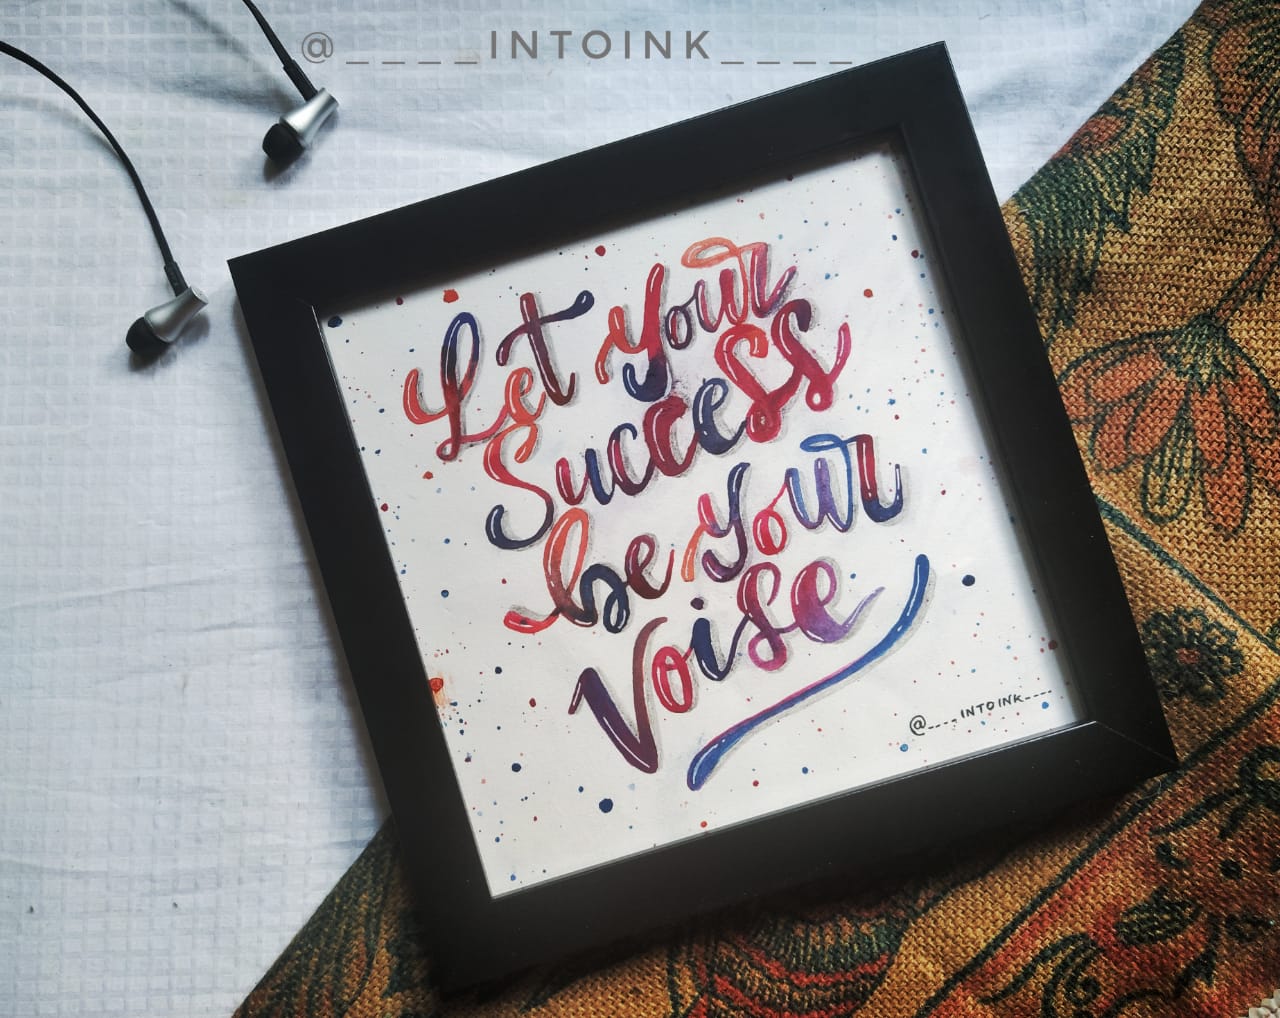 @____INTOINK____
Let Your
Success
be Your
Voise
@____INTOINK____